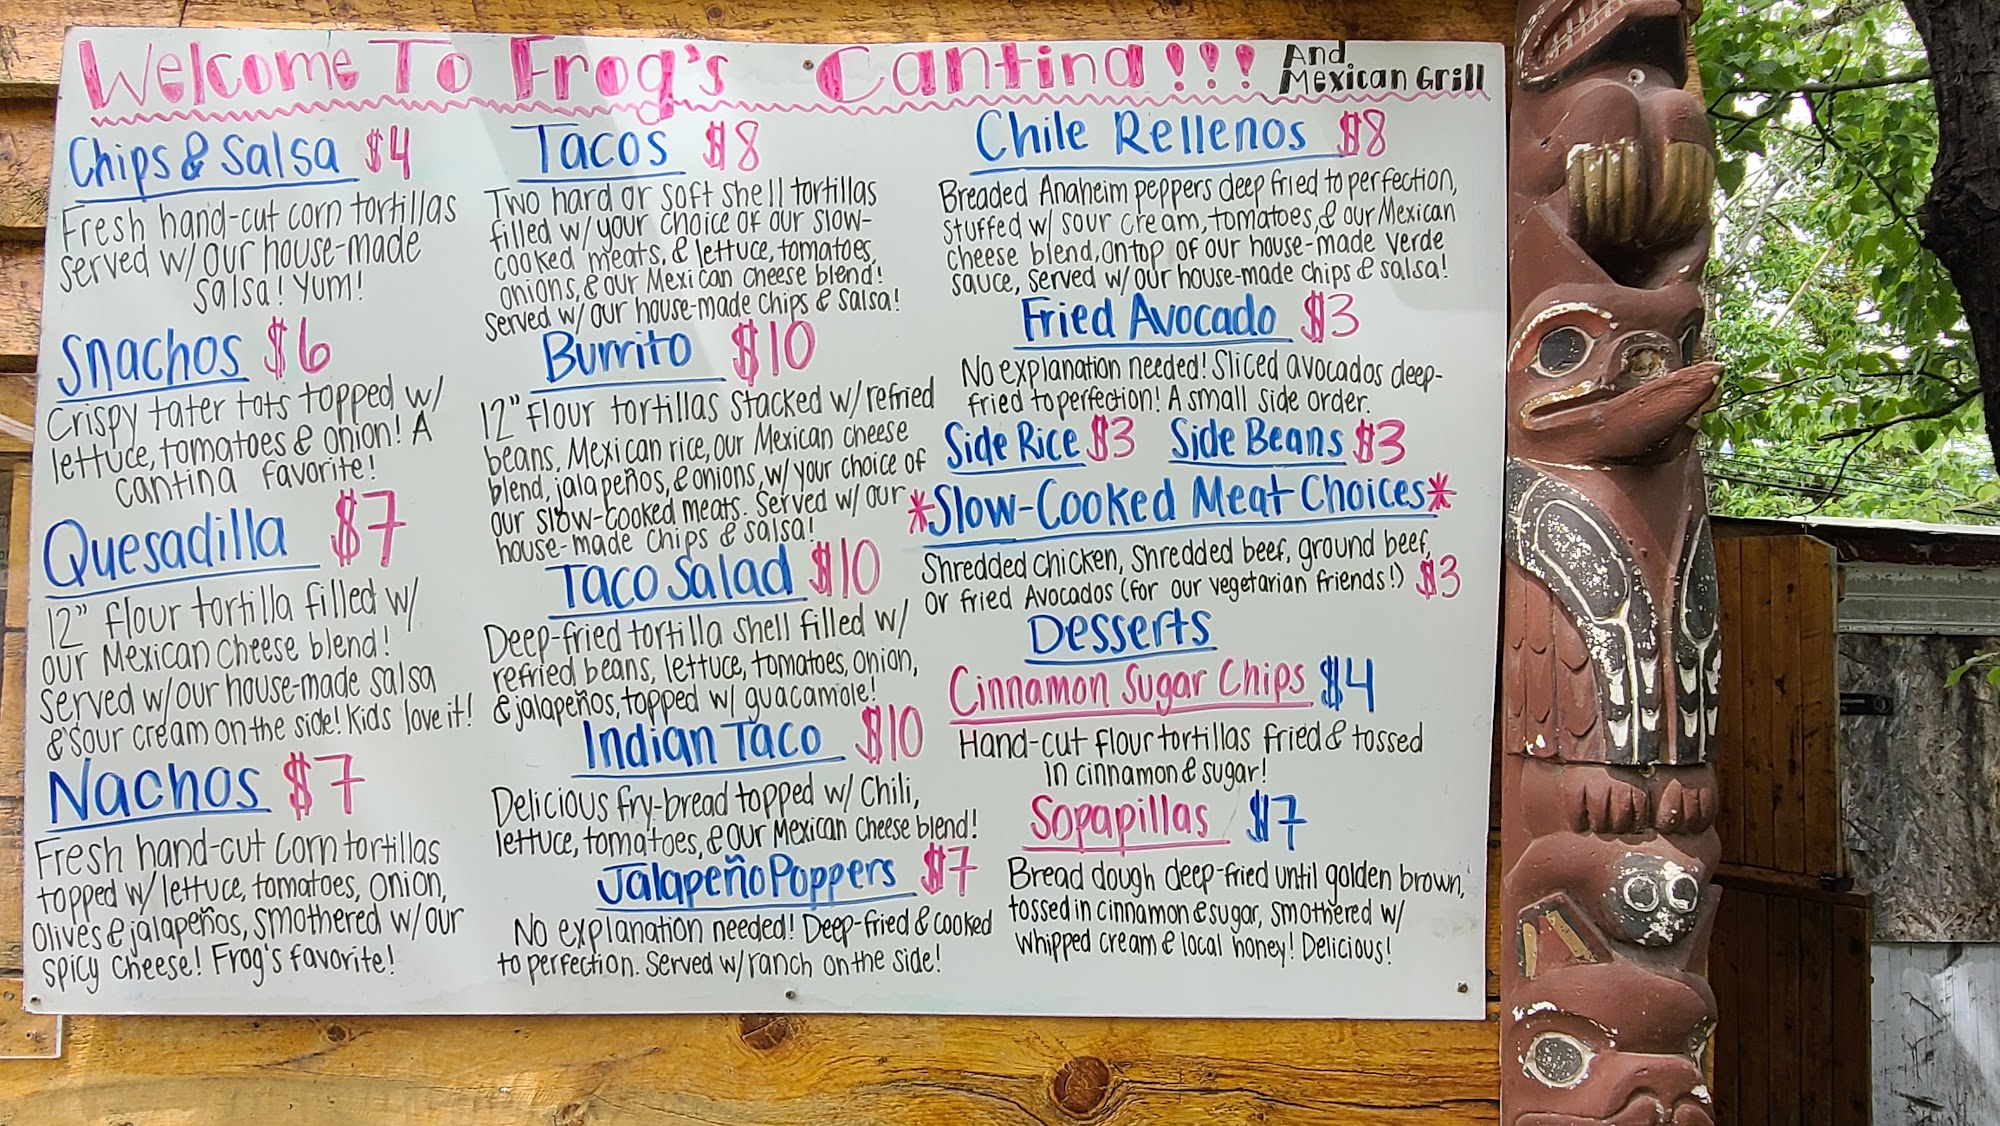 Welcome To Frog's Cantina!!! And
Mexican Grill
Chips & Salsa $4
Fresh hand-cut corn tortillas
served w/ our house-made
salsa! Yum!
Snachos $6
Crispy tater tots topped w/
lettuce, tomatoes & onion! A
cantina favorite!
Quesadilla $7
12" flour tortilla filled w/
our Mexican cheese blend!
Served w/ our house-made salsa
& sour cream on the side! Kids love it!
Nachos $7
Fresh hand-cut corn tortillas
topped w/ lettuce, tomatoes, onion,
olives & jalapeños, smothered w/ our
spicy cheese! Frog's favorite!
Tacos $8
Two hard or soft shell tortillas
filled w/ your choice of our slow-
cooked meats, & lettuce, tomatoes,
onions, & our Mexican cheese blend!
Served w/ our house-made chips & salsa!
Burrito $10
12" flour tortillas stacked w/ refried
beans, Mexican rice, our Mexican cheese
blend, jalapeños, & onions, w/ your choice of
our slow-cooked meats. Served w/ our
house-made chips & salsa!
Taco Salad $10
Deep-fried tortilla shell filled w/
refried beans, lettuce, tomatoes, onion,
& jalapeños, topped w/ guacamole!
Indian Taco $10
Delicious fry-bread topped w/ Chili,
lettuce, tomatoes, & our Mexican cheese blend!
Jalapeño Poppers $7
No explanation needed! Deep-fried & cooked
to perfection. Served w/ ranch on the side!
Chile Rellenos $8
Breaded Anaheim peppers deep fried to perfection,
stuffed w/ sour cream, tomatoes, & our Mexican
cheese blend, on top of our house-made verde
sauce, served w/ our house-made chips & salsa!
Fried Avocado $3
No explanation needed! Sliced avocados deep-
fried to perfection! A small side order.
Side Rice $3 Side Beans $3
*Slow-Cooked Meat Choices*
Shredded chicken, shredded beef, ground beef,
or fried Avocados (for our vegetarian friends!) $3
Desserts
Cinnamon Sugar Chips $4
Hand-cut flour tortillas fried & tossed
in cinnamon & sugar!
Sopapillas $7
Bread dough deep-fried until golden brown,
tossed in cinnamon & sugar, smothered w/
whipped cream & local honey! Delicious!